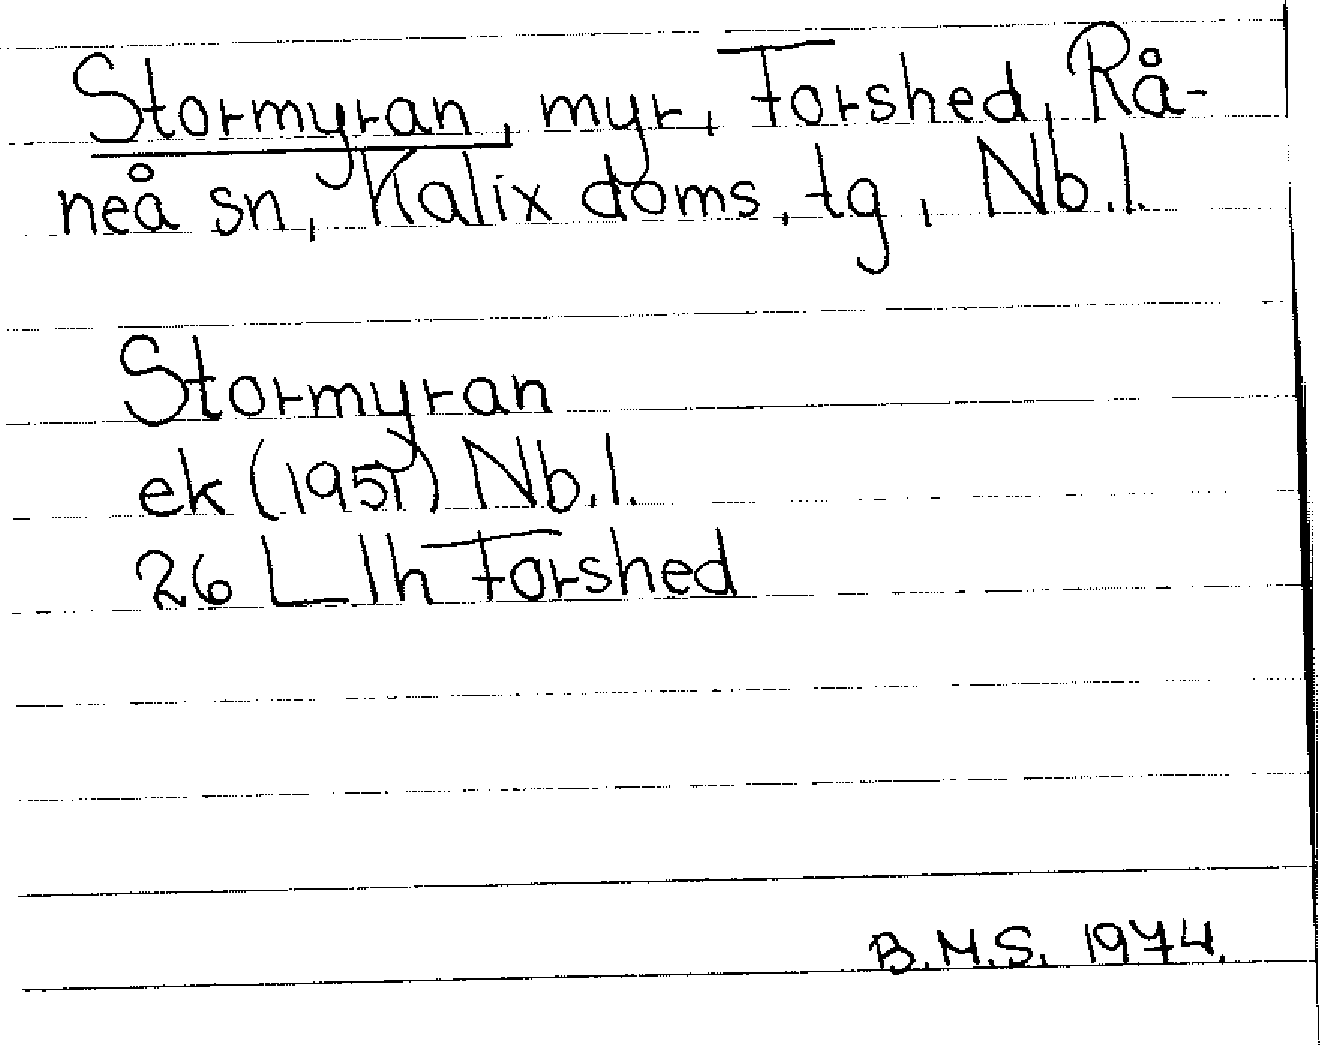 Stormyran, myr, Forshed, Rå-
neå sn, Kalix doms. tg, Nb.l.
Stormyran
ek (1951) Nb.l.
26 L 1h Forshed
B.M.S. 1974.